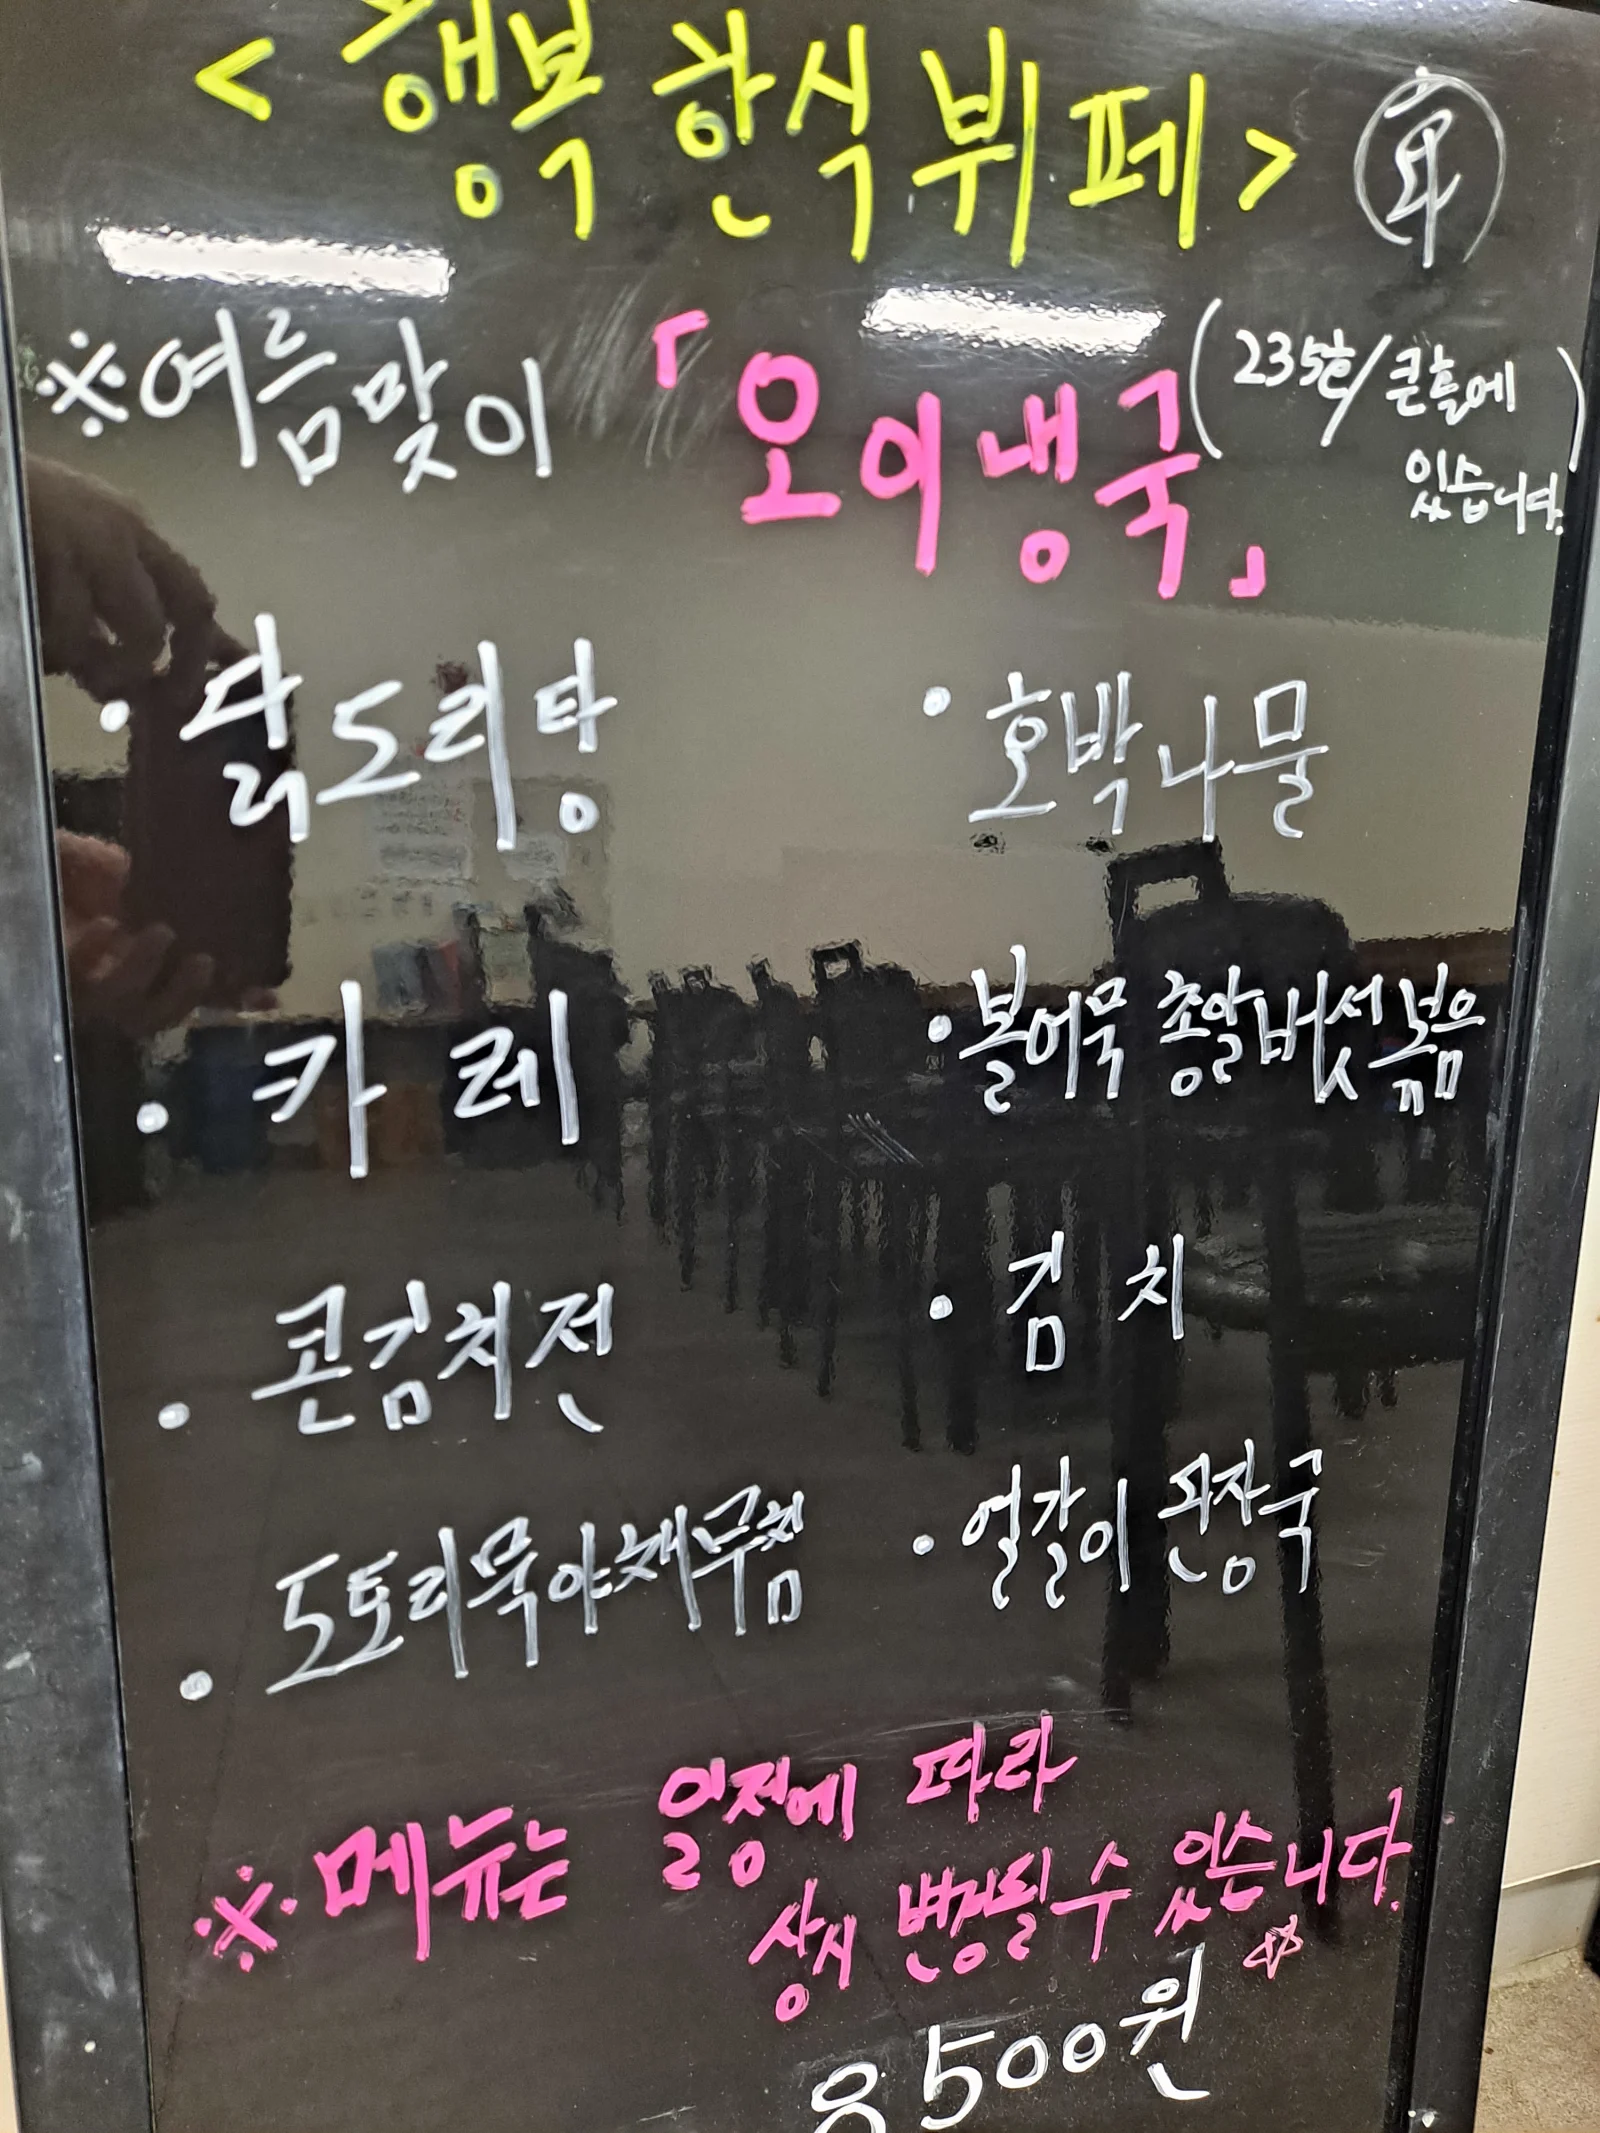 <행복 한식 뷔페>
※여름맞이 「오이냉국」 (235호/큰홀에 있습니다.)
· 닭도리탕
· 호박나물
· 카레
· 볼어묵 총알버섯볶음
· 콘김치전
· 김치
· 도토리묵야채무침
· 얼갈이 된장국
※메뉴는 일정에 따라
상시 변경될 수 있습니다.
8500원